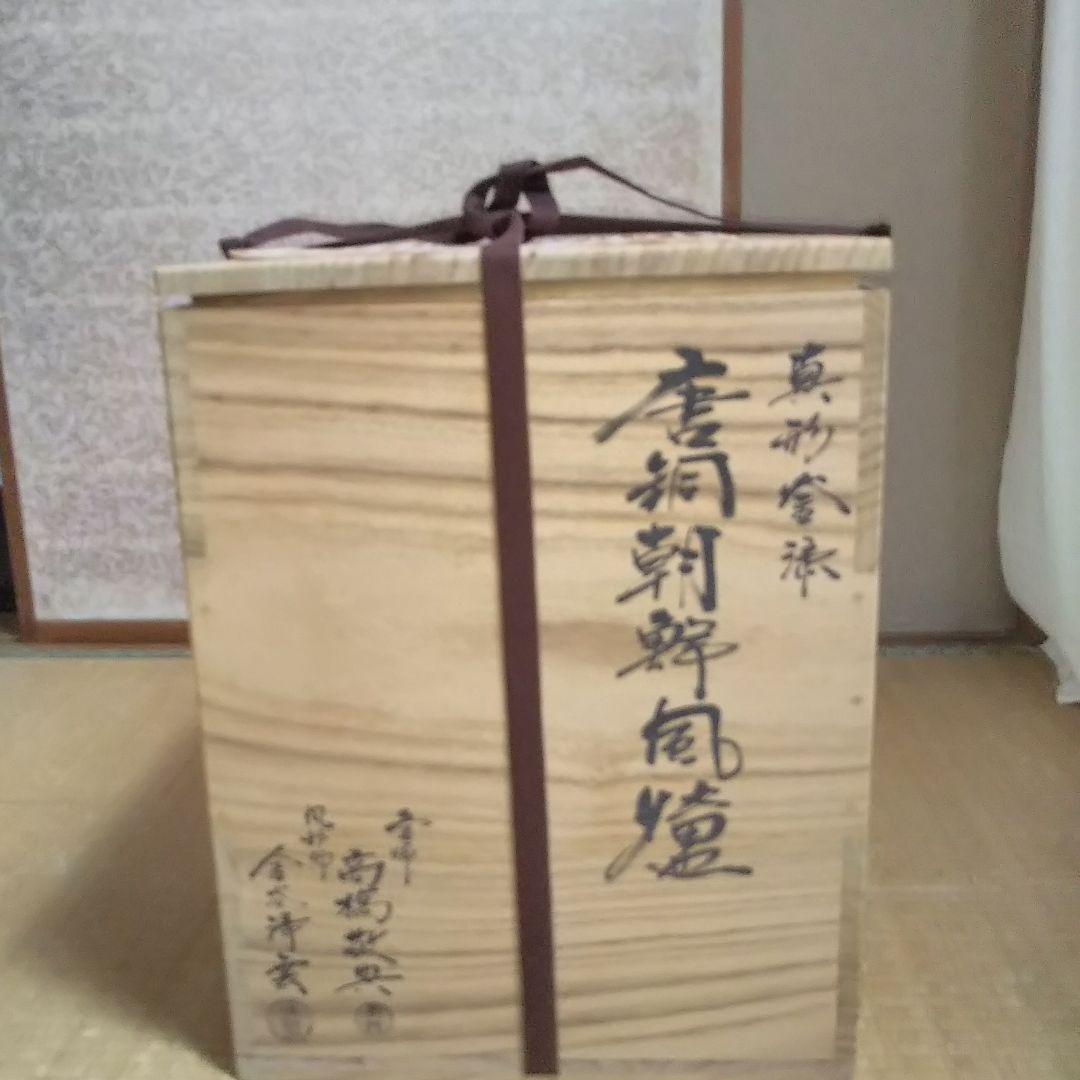 真形釜添
唐銅朝鮮風爐
釜師
高橋敬典
風炉師
金森浄栄